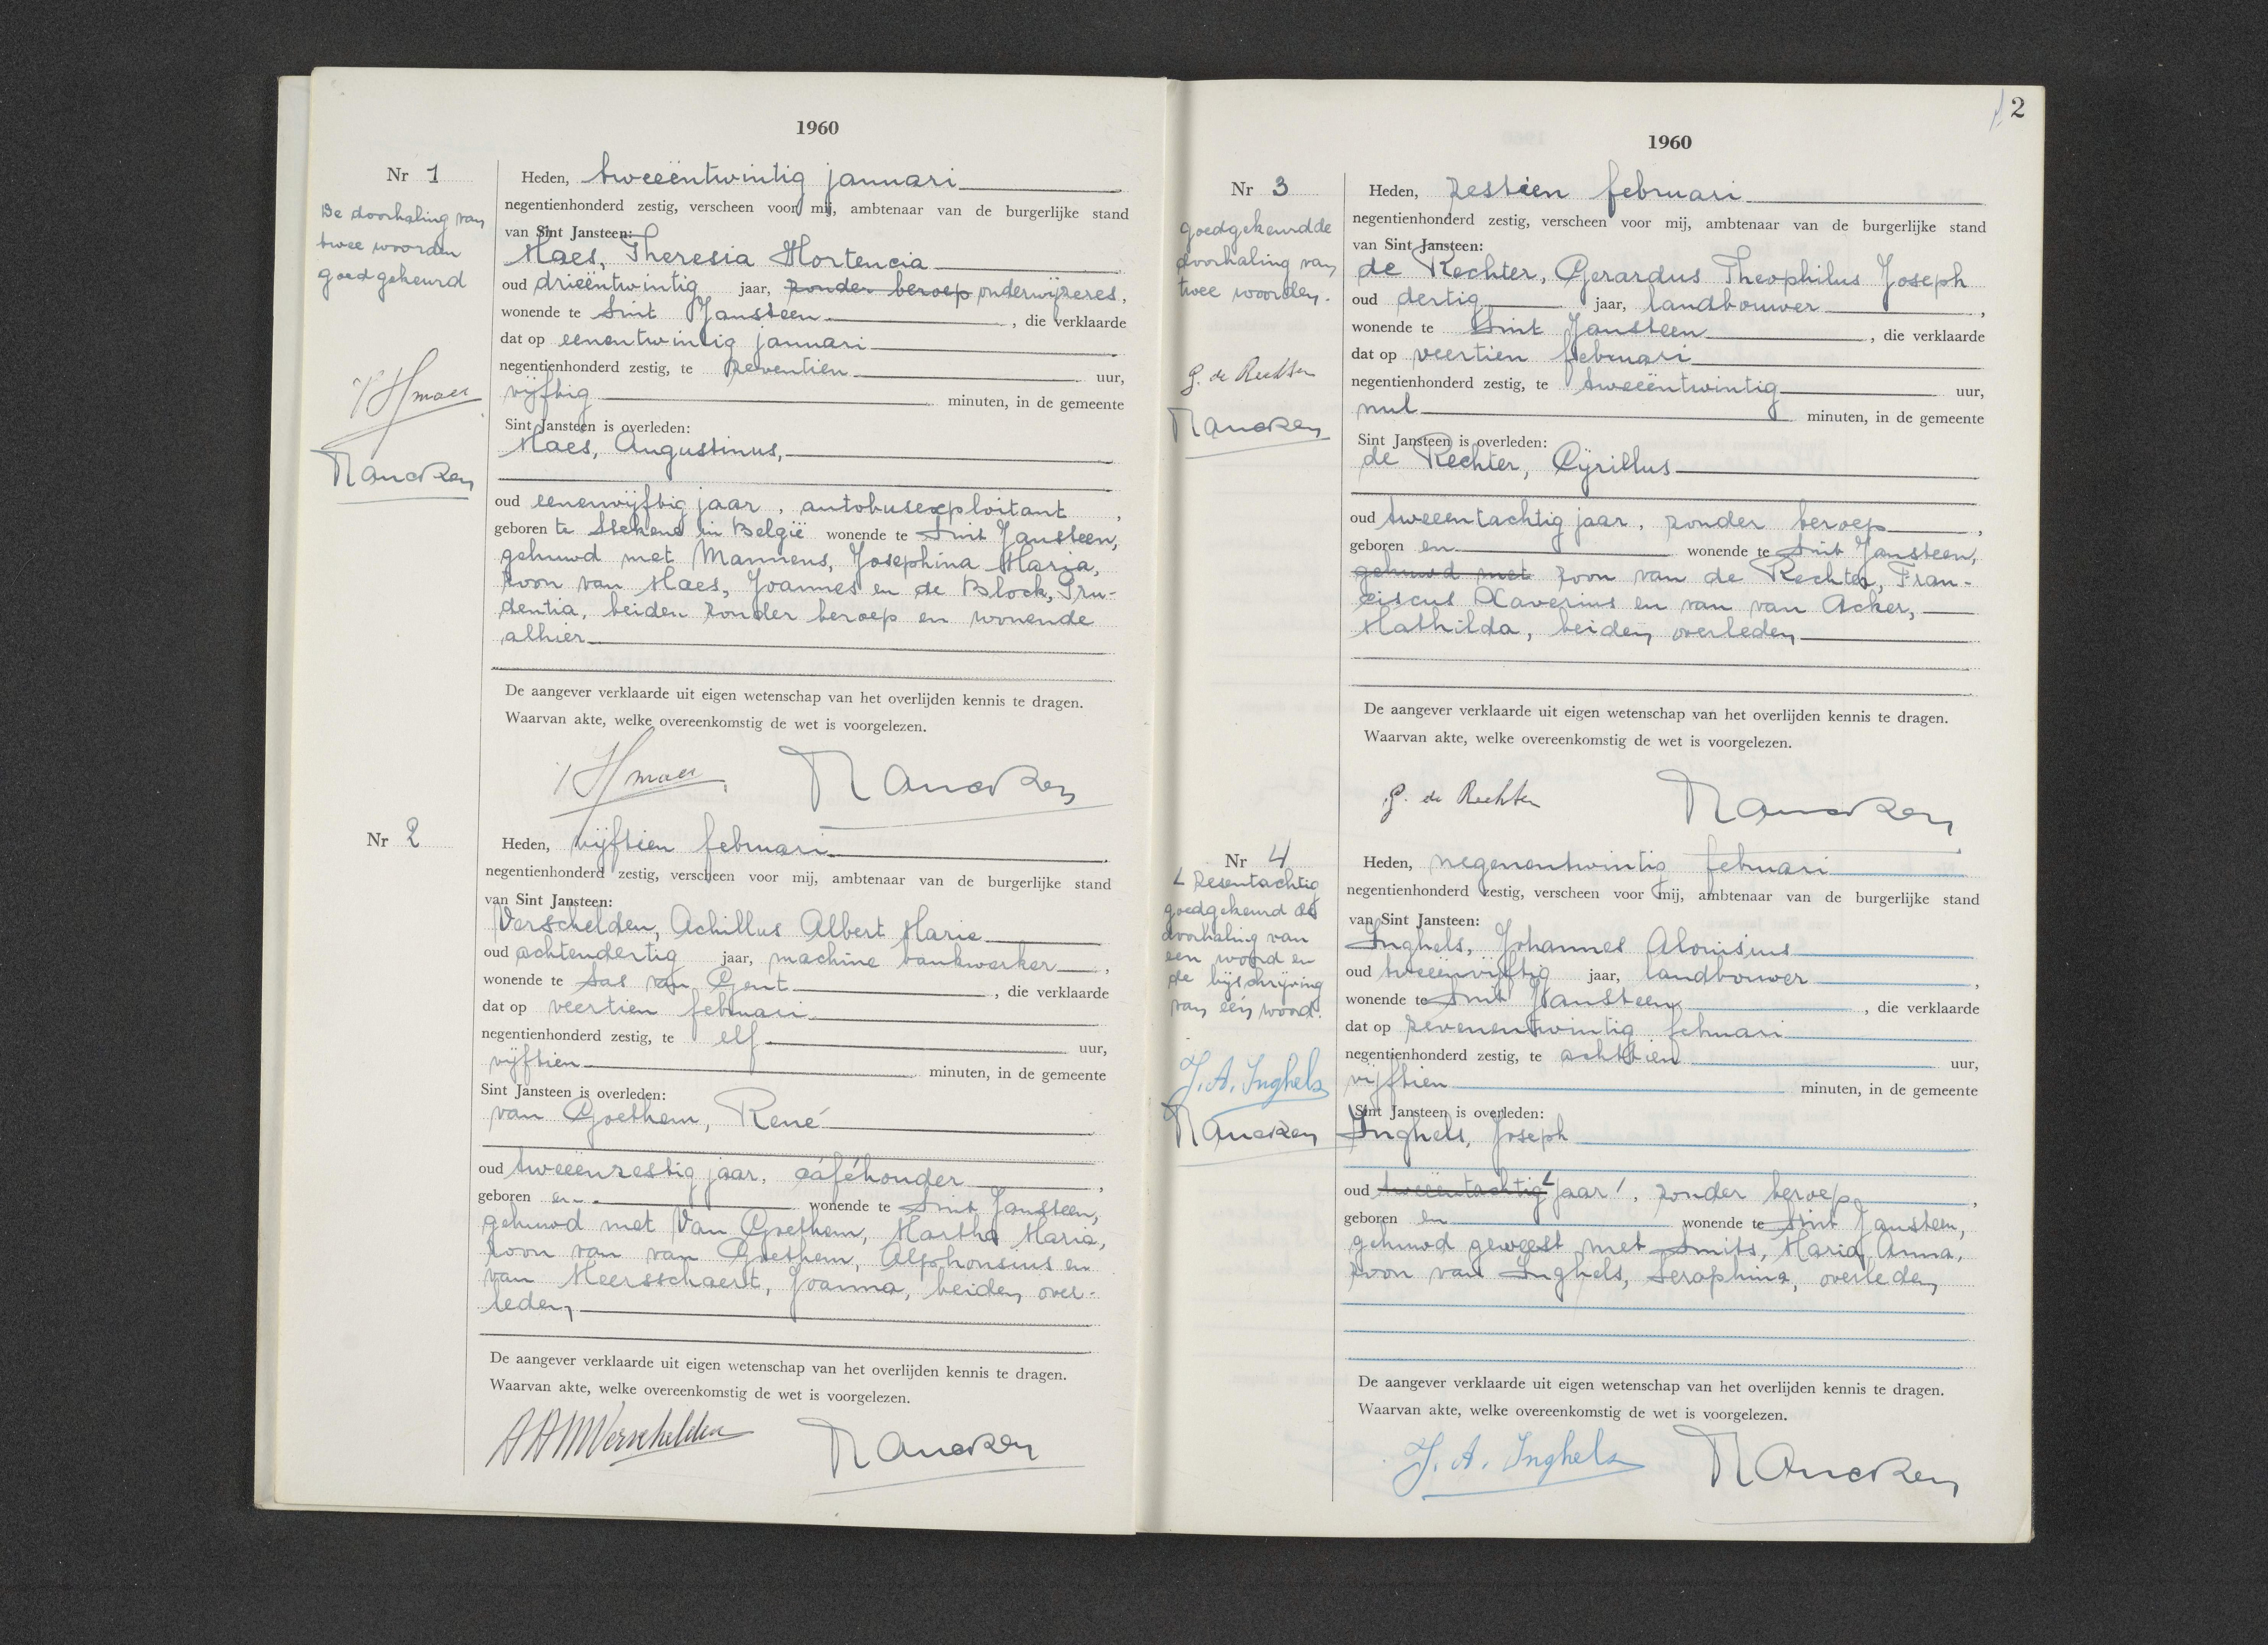 1960
Nr 1
De doorhaling van
twee woorden
goedgekeurd
Heden, tweeëntwintig januari
negentienhonderd zestig, verscheen voor mij, ambtenaar van de burgerlijke stand
van Sint Jansteen:
Maes, Theresia Hortencia
oud drieëntwintig jaar, zonder beroep onderwijzeres,
wonende te Sint Jansteen, die verklaarde
dat op eenentwintig januari
negentienhonderd zestig, te zeventien uur,
vijftig minuten, in de gemeente
Sint Jansteen is overleden:
Maes, Augustinus,
oud eenenvijftig jaar, autobusexploitant,
geboren te Stekene in België wonende te Sint Jansteen,
gehuwd met Mannens, Josephina Maria,
zoon van Maes, Joannes en de Block, Pru-
dentia, beiden zonder beroep en wonende
alhier
De aangever verklaarde uit eigen wetenschap van het overlijden kennis te dragen.
Waarvan akte, welke overeenkomstig de wet is voorgelezen.
Nr 2
Heden, vijftien februari
negentienhonderd zestig, verscheen voor mij, ambtenaar van de burgerlijke stand
van Sint Jansteen:
Verschelden, Achillus Albert Marie
oud achtendertig jaar, machine bankwerker,
wonende te Sas van Gent, die verklaarde
dat op veertien februari
negentienhonderd zestig, te elf uur,
vijftien minuten, in de gemeente
Sint Jansteen is overleden:
van Goethem, René
oud tweeënzestig jaar, caféhouder,
geboren en wonende te Sint Jansteen,
gehuwd met Van Goethem, Martha Maria,
zoon van van Goethem, Alphonsius en
van Meersschaert, Joanna, beiden over-
leden
De aangever verklaarde uit eigen wetenschap van het overlijden kennis te dragen.
Waarvan akte, welke overeenkomstig de wet is voorgelezen.
AAMVerschelden
2
1960
Nr 3
goedgekeurdde
doorhaling van
twee woorden.
G. de Rechter
Heden, zestien februari
negentienhonderd zestig, verscheen voor mij, ambtenaar van de burgerlijke stand
van Sint Jansteen:
de Rechter, Gerardus Theophilus Joseph
oud dertig jaar, landbouwer,
wonende te Sint Jansteen, die verklaarde
dat op veertien februari
negentienhonderd zestig, te tweeëntwintig uur,
nul minuten, in de gemeente
Sint Jansteen is overleden:
de Rechter, Cyrillus
oud tweeëntachtig jaar, zonder beroep,
geboren en wonende te Sint Jansteen,
gehuwd met zoon van de Rechter, Fran-
ciscus Xaverius en van van Acker,
Mathilda, beiden overleden
De aangever verklaarde uit eigen wetenschap van het overlijden kennis te dragen.
Waarvan akte, welke overeenkomstig de wet is voorgelezen.
G. de Rechter
Nr 4
zesentachtig
goedgekeurd de
doorhaling van
een woord en
de bijschrijving
van één woord.
J. A. Inghels
Heden, negenentwintig februari
negentienhonderd zestig, verscheen voor mij, ambtenaar van de burgerlijke stand
van Sint Jansteen:
Inghels, Johannes Aloisius
oud tweeënvijftig jaar, landbouwer,
wonende te Sint Jansteen, die verklaarde
dat op zevenentwintig februari
negentienhonderd zestig, te achttien uur,
vijftien minuten, in de gemeente
Sint Jansteen is overleden:
Inghels, Joseph
oud tweeëntachtig jaar, zonder beroep,
geboren en wonende te Sint Jansteen,
gehuwd geweest met Smits, Maria Anna,
zoon van Inghels, Seraphina, overleden
De aangever verklaarde uit eigen wetenschap van het overlijden kennis te dragen.
Waarvan akte, welke overeenkomstig de wet is voorgelezen.
J. A. Inghels